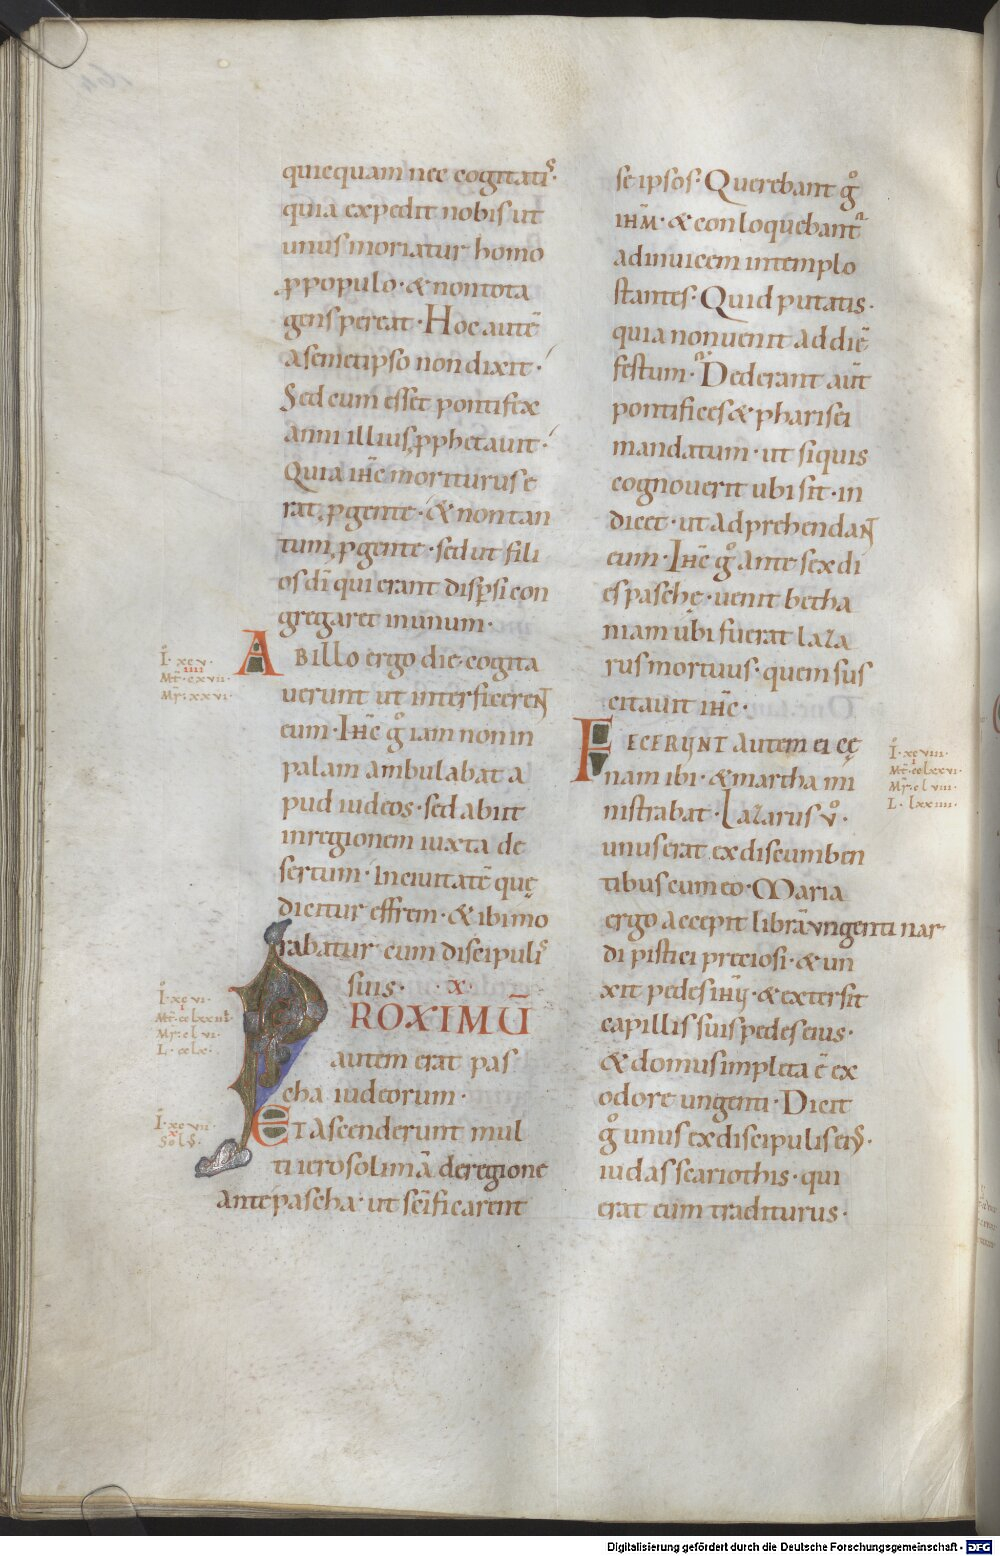 quicquam nec cogitatiſ·
quia expedit nobis ut
unus moriatur homo
ꝓ populo· & non tota
gens pereat· Hoc autē
a semetipso non dixit·
Sed cum esset pontifex
anni illius, ꝓphetauit·
Quia ihc̄ moriturus e
rat, ꝓ gente· & non tan
tum, ꝓ gente· sed ut fili
os dī qui erant disp̄si con
gregaret in unum·
AB illo ergo die· cogita
uerunt ut interficereN̄
eum· Ihc̄ gͦ iam non in
palam ambulabat a
pud iudeos· sed abiit
in regionem iuxta de
sertum· in ciuitatē quę
dicitur effrem· & ibi mo
rabatur cum discipulis
suis· x·
PROXIMŪ
autem erat pas
cha iudeorum·
Et ascenderunt mul
ti ierosolimā de regione
ante pascha· ut scīficarent
se ipsos· Querebant gͦ
ihm̄· & conloquebant᷑
ad inuicem in templo
stantes· Quid putatis·
quia non uenit ad diē
festum· Dederant aut̄
pontifices & pharisei
mandatum· ut si quis
cognouerit ubi sit· in
dicet· ut adprehendaN̄
eum· Ihc̄ gͦ ante sex di
es paschę· uenit betha
niam ubi fuerat laza
rus mortuus· quem sus
citauit ihc̄·
FECERUNT autem ei cę
nam ibi· & martha mi
nistrabat· Lazarus vͦ·
unus erat ex discumben
tibus cum eo· Maria
ergo accepit librā ungenti nar
di pistici preciosi· & un
xit pedes ihū· & extersit
capillis suis pedes eius·
& domus impleta ē ex
odore ungenti· Dicit
gͦ unus ex discipulis eiꝰ·
iudas scariothis· qui
erat eum traditurus·
I· xcv·
Mr· xxvi·
I· xcvi·
Mr· clvi·
I· xcvii·
I· xcviii·
Mt· cclxxvi·
Mr· clviii·
L· lxxiiii·
Digitalisierung gefördert durch die Deutsche Forschungsgemeinschaft - DFG